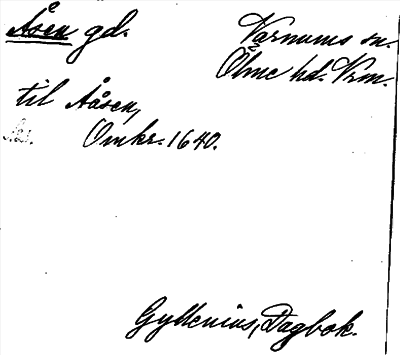 Åsen gd.
Varnums sn.
Ölme hd. Vrm.
til Aåsen,
Omkr. 1640.
Gyllenius, Dagbok.